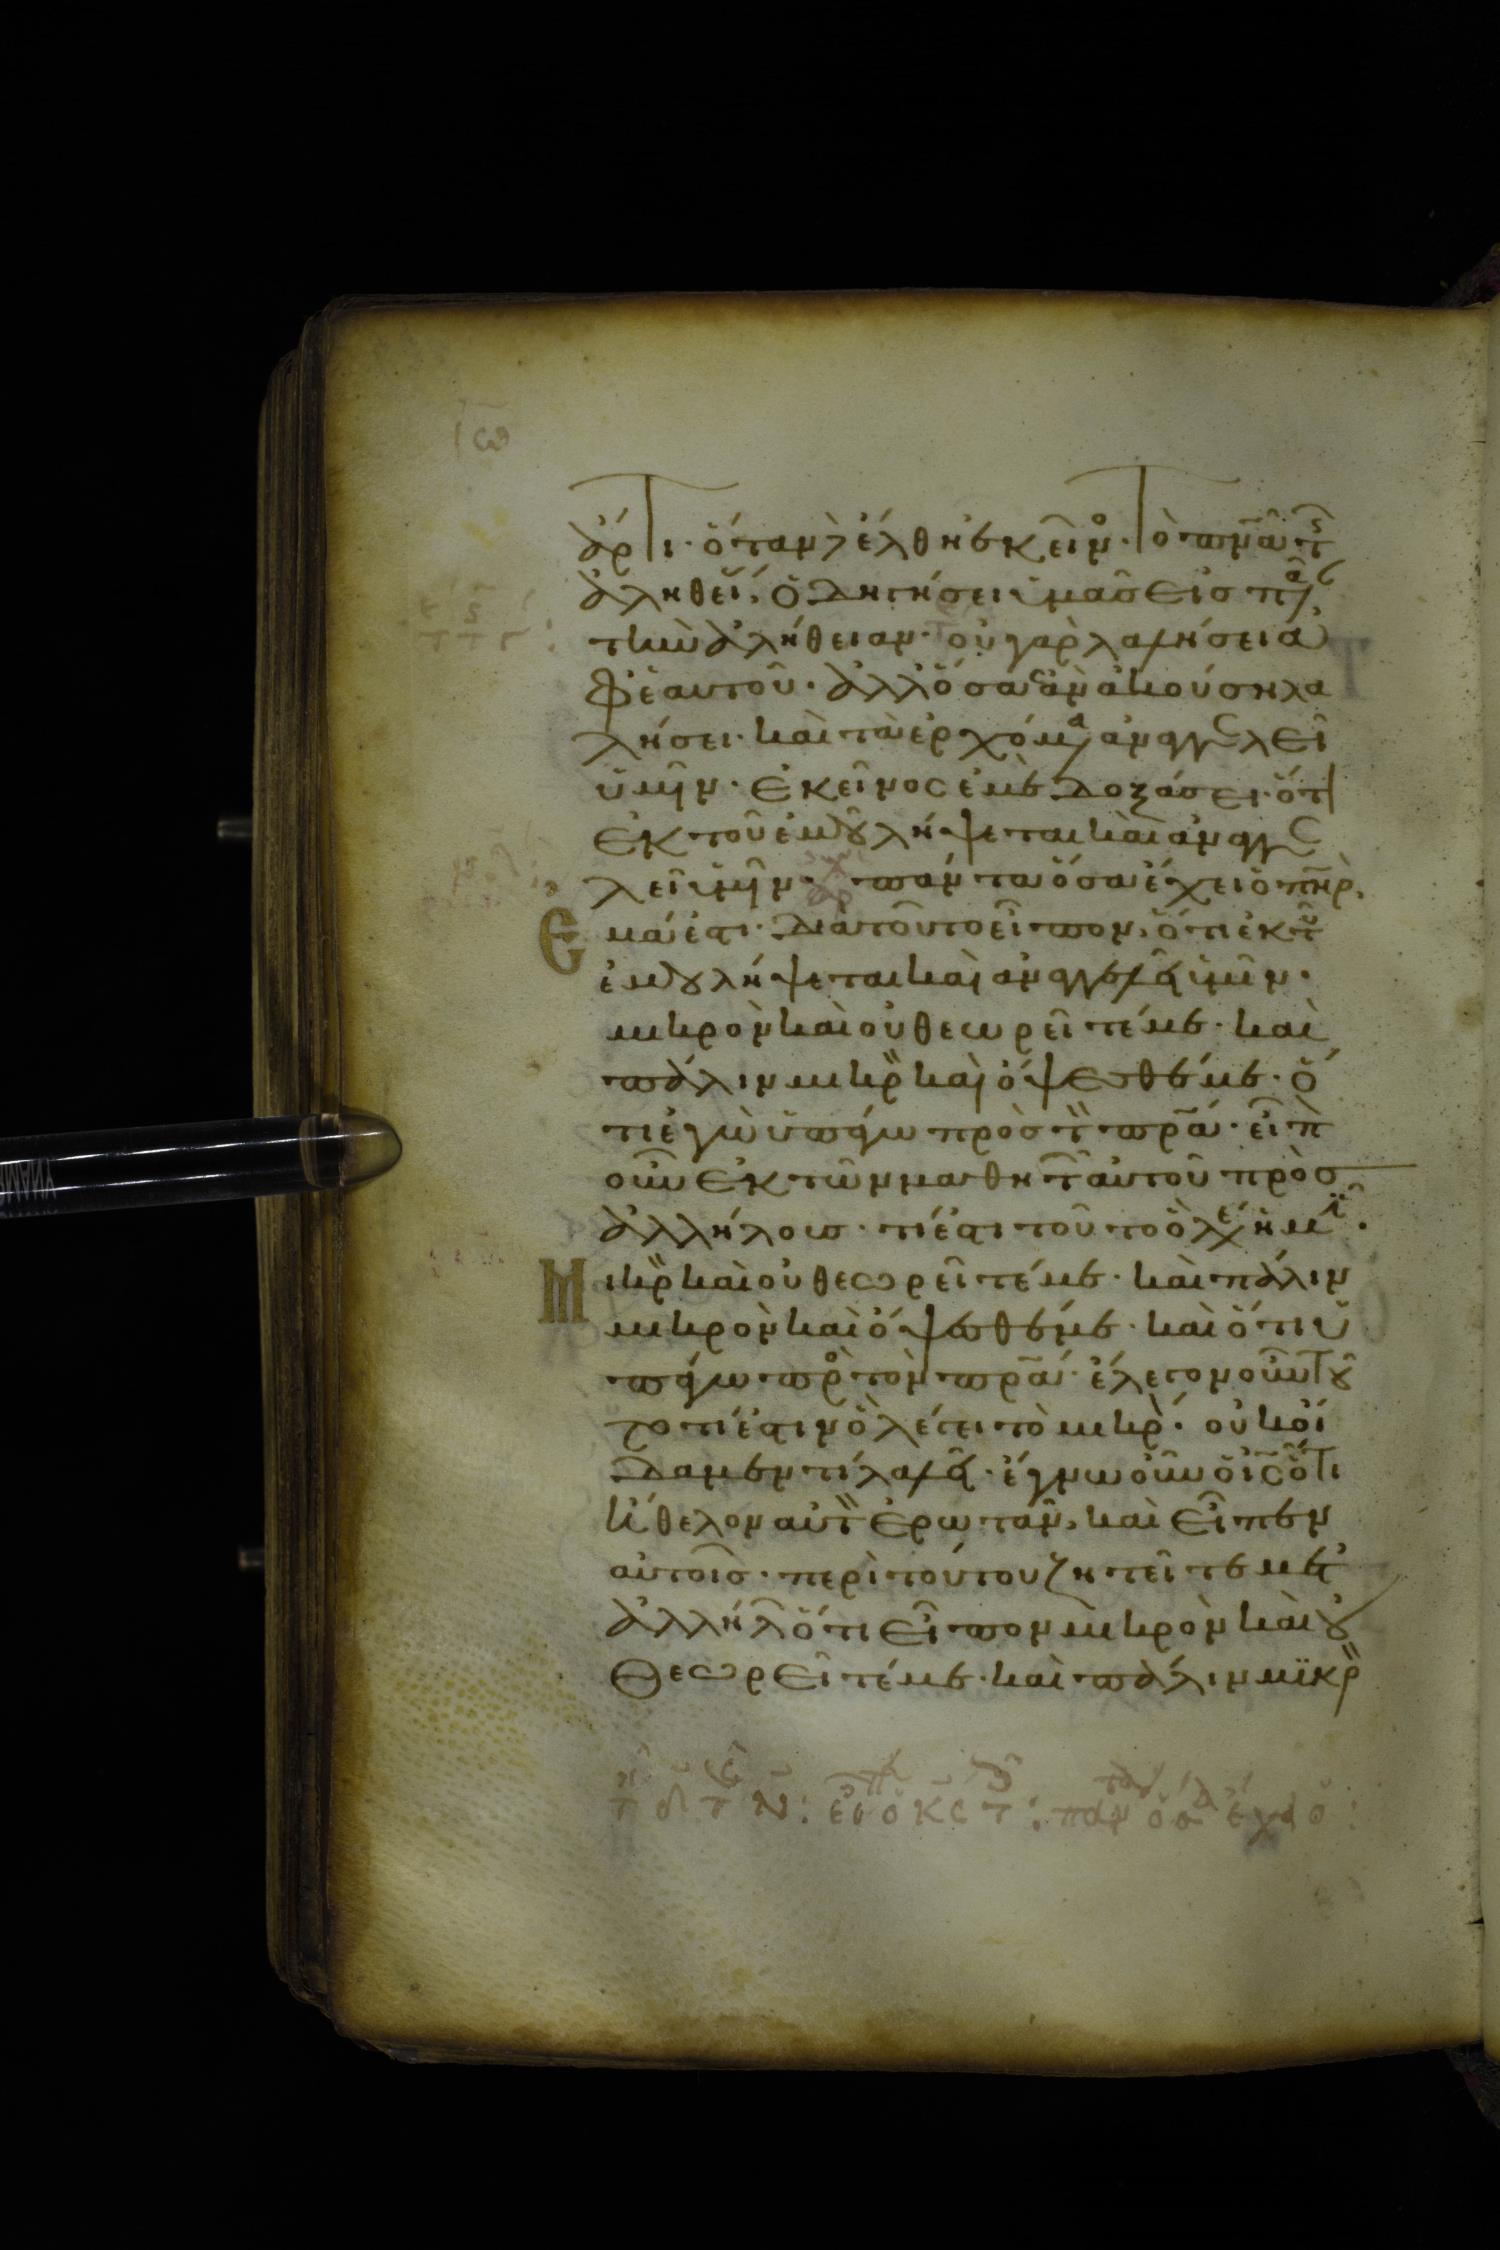 ἄρτι· ὅταν δὲ ἔλθη ἐκεῖν͛ο· Τὸ πν̅α τῆς
ἀληθεί, ὁδηγήσει ὑμᾶς εἰς πᾶσ
τὴν ἀλήθειαν· οὐ γὰρ λαλήσει ἀ
φ' ἑαυτοῦ· ἀλλ' ὅσα ἂν ἀκούση λα
λήσει· καὶ τὰ ἐρχόμα ἀναγγελεῖ
ὑμῖν· ἐκεῖνος ἐμὲ δοξάσει· ὅτι
ἐκ τοῦ ἐμοῦ λήψεται καὶ ἀναγγε
λεῖ ὑμῖν· πάντα ὅσα ἔχει ὁ πηρ,
ἐμά ἐστι· διὰ τοῦτο εἶπον, ὅτι ἐκ τοῦ
ἐμοῦ λήψεται καὶ ἀναγγελεῖ ὑμῖν·
μικρὸν καὶ οὐ θεωρεῖτέ με· καὶ
πάλιν μικρ καὶ ὄψεσθέ με· ὅ
τι ἐγὼ ὑπάγω πρὸς τὸν πρα· εἶπον
οὖν ἐκ τῶν μαθητῶν αὐτοῦ πρὸς
ἀλλήλους· τί ἐστι τοῦτο ὃ λέγει ἡμῖ·
Μικρ καὶ οὐ θεωρεῖτέ με· καὶ πάλιν
μικρὸν καὶ ὄψεσθέ με· καὶ ὅτι ὑ
πάγω πρὸ τὸν πρα· ἔλεγον οὖν τοῦ
το τί ἐστιν ὃ λέγει τὸ μικρ· οὐκ οἴ
δαμεν τί λαλεῖ· ἔγνω οὖν ὁ ις ὅτι
ἤθελον αὐτὸν ἐρωτᾶν, καὶ εἶπεν
αὐτοῖς· περὶ τούτου ζητεῖτε μετ'
ἀλλήλ ὅτι εἶπον μικρὸν καὶ οὐ
θεωρεῖτέ με· καὶ πάλιν μικρ